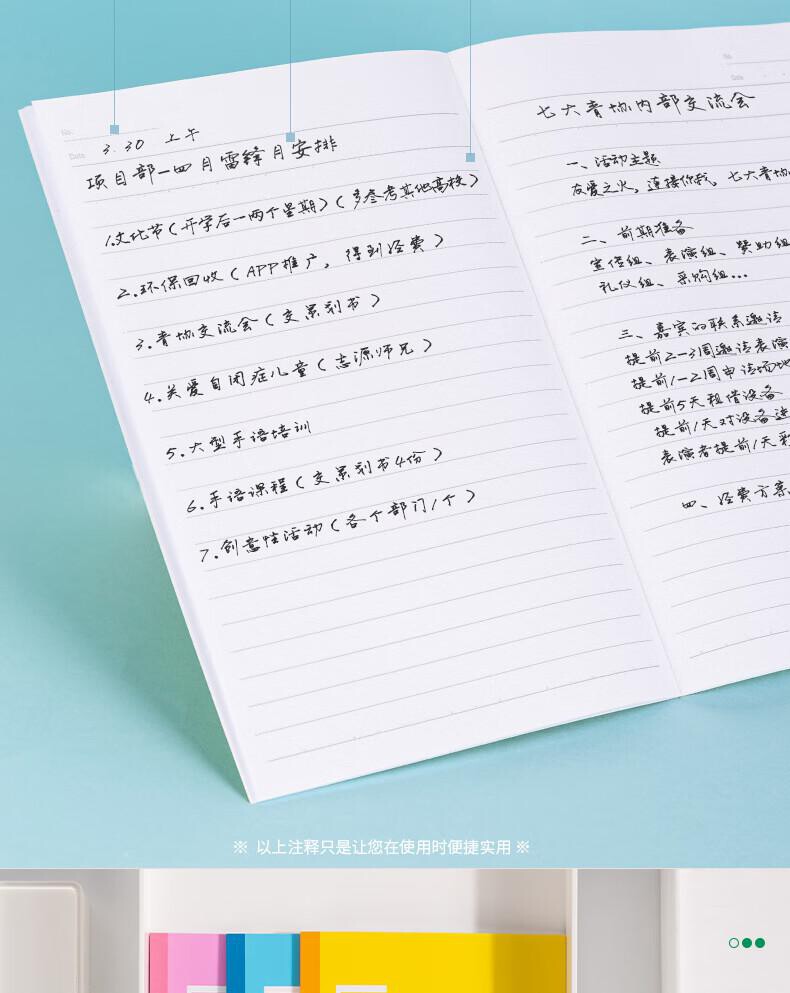 No.
Date
3. 30 上午
项目部一四月雷锋月安排
1.文化节(开学后一两个星期)(多参考其他高校)
2.环保回收(APP推广,得到经费)
3.青协交流会(交策划书)
4.关爱自闭症儿童(志源师兄)
5.大型手语培训
6.手语课程(交策划书4份)
7.创意性活动(各个部门1个)
No.
Date
七大青协内部交流会
一、活动主题
友爱之火,连接你我,七大青协
二、前期准备
宣传组、表演组、赞助组
礼仪组、采购组...
三、嘉宾的联系邀请
提前2-3周邀请表演
提前1-2周申请场地
提前5天租借设备
提前1天对设备进
表演者提前1天彩
四、经费方案
※ 以上注释只是让您在使用时便捷实用 ※